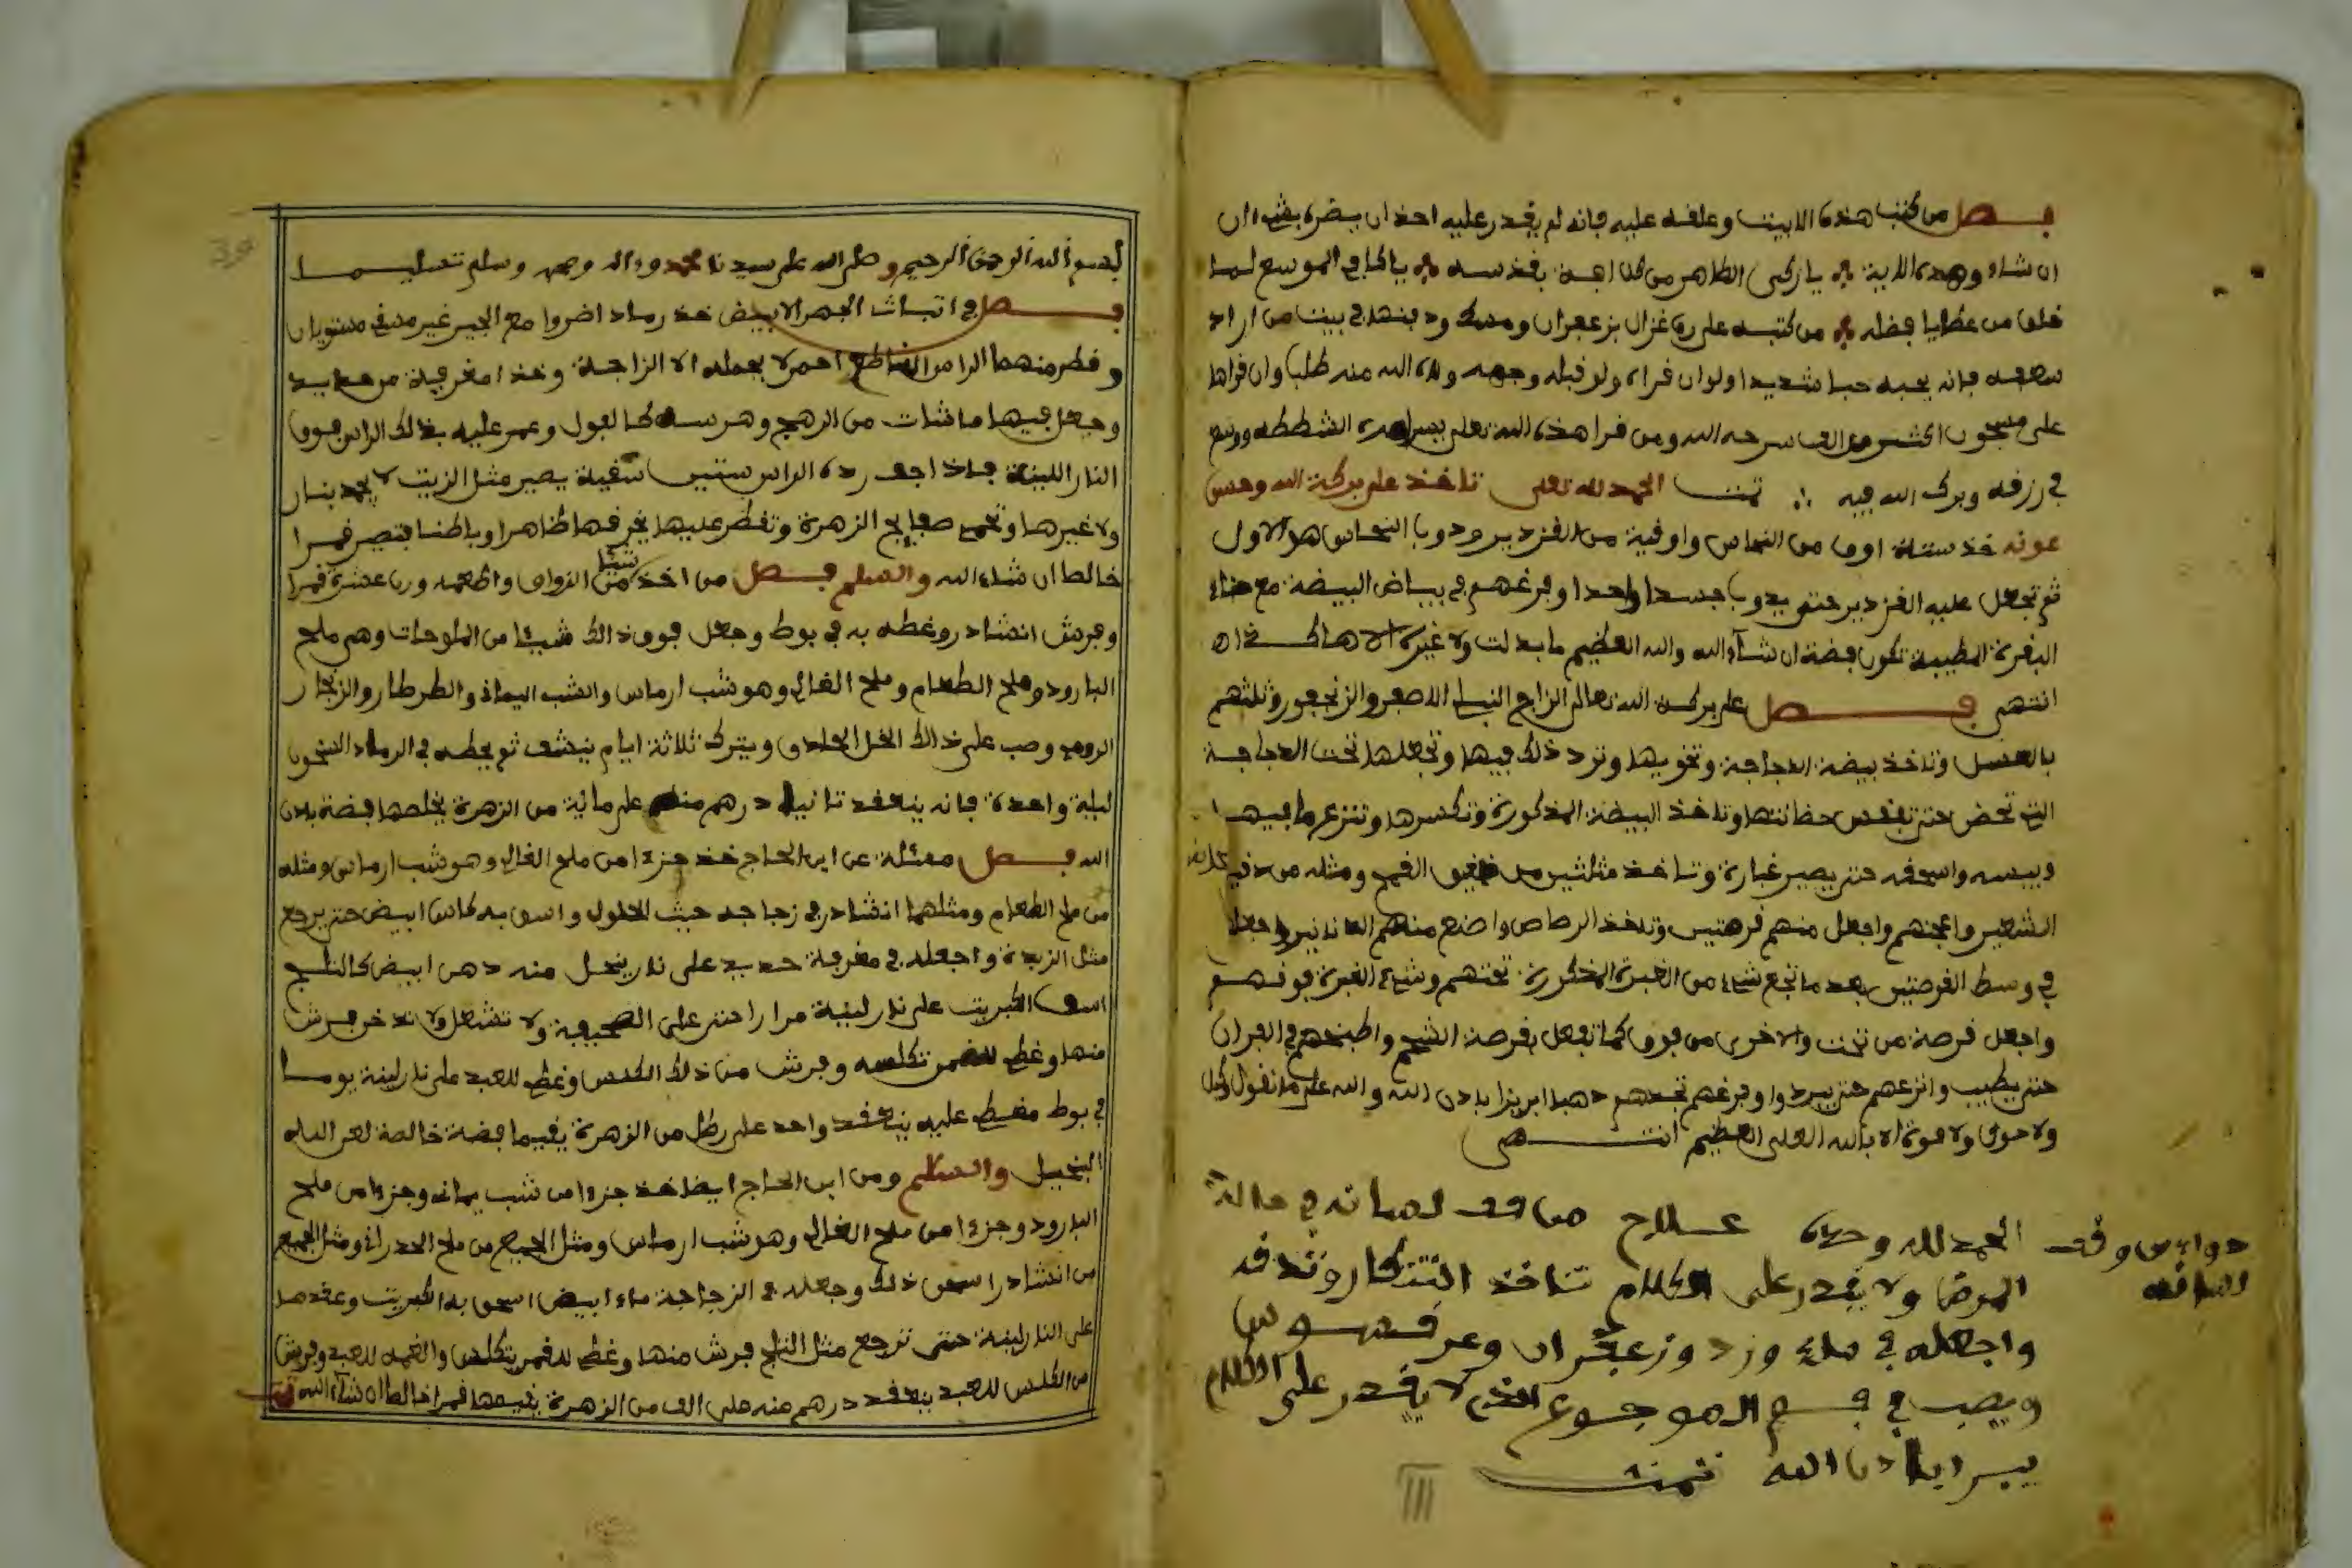 فصل من كتب هذه الابيت وعلقه عليه فانه لم يقدر عليه احد ان يضره بشء ان
ان شاء وهذه الابية يازكى الطاهر من كل اهة بقدسه ياكافى الموسع لما
خلق من عطايا فضله من كتبه على رق غزال بزعفران ومسك ودفنها في بيت من اراد
فانه يحبه حبا شديدا ولو ان فراه ولو قبله وجهه الله منه طلب وان قراها
على مسجون اكثر من الف سرحه الله ومن قرا هذه ووسع
في رزقه وبرك الله فيه تمت الحمد لله تعلى تاخذ على بركة الله وحسن
عونه خذ ستة اوق من النحاس واوقية من القزدير ودوب النحاس هو الاول
ثم تجعل عليه القزدير حتى يدوب جسدا واحدا وفرغهم في بياض البيضة مع
البقرة المطيبة تكون فضة ان شاء الله والله العظيم ما بدلت ولا غيرت الا هاكذاه
انتهى فصل على بركت الله تعالى الزاج الاصفر والزنجفور وثلثهم
بالعسل وتاخذ بيضة الدجاجة وتخويها وترد ذلك فيها وتجعلها تحت الدجاجة
التي تحضن حتى تفقس حضانتها وتاخذ البيضة المذكورة وتكسرها وتنزع ما فيها
ويبسه واسحقه حتى يصير غبارة وتاخذ مثلثين من دقيق القمح ومثله من دقيق
الشعير واعجنهم واجعل منهم قرصتين وتاخذ الرصاص واضع منهم واجعل
في وسط القرصتين بعد ما تجع شيء من الغبرة المذكورة تحتهم وشيء الغبرة فوقهم
واجعل قرصة من تحت والاخرى من فوق كما تفعل بقرصة الشحم واطبخهم في الفران
حتى يطيب وانزعهم حتى يبردوا وفرغهم تجدهم دهبا ابريزا بادن الله والله على ما نقول وكيل
ولا حول ولا قوة الا بالله العلي العظيم انتهى
الحمد لله وحده علاج من وقف لسانه في حالة
المرض ولا يقدر على الكلام تاخذ التنكار وتدقه
واجعله في ماء ورد وزعفران وعرق سوس
ويصب في فم الموجوع الذي لا يقدر على الكلام
يبرا بادن الله تمت
دواء من وقف
لسانه
بسم الله الرحمن الرحيم وصلى الله على سيدنا محمد وءاله وصحبه وسلم تسليما
فصل في اثبات الجهر الابيض خذ رماد اضروا مع الجير غير مسقى مستويان
وقطر منهما الراس القاطع احمر لا يحمله الا الزاجة وخذ امغرفة من حديد
وجعل فيها ما شات من الرهج وهرسه كالفول وعمر عليه بذلك الراس فوق
النار اللينة فاذا جف رده الراس ستين سقية يصير مثل الزيت لا يجمد بنار
ولا غيرها وتحمى صفايح الزهرة وتقطر عليها يخرقها ظاهرا وباطنا فتصير قمرا
خالطا ان شاء الله والسلم فصل من اخذ شيئا من الزواق واطعمه وزن عشرة قمرا
وفرش انشادر وغطه به في بوط وجعل فوق ذالك شيئا من الملوحات وهي ملح
البارود وملح الطعام وملح القالى وهو شب ارماس والشب اليماني والطرطار والزنجار
الرومى وصب على ذالك الخل الحاذق ويترك ثلاثة ايام ينشف ثم يحطه في الرماد السخون
ليلة واحدة فانه ينعقد تانيا درهم منه على مائة من الزهرة يخلصها فضة بادن
الله فصل مسئلة عن ابن الحاج خذ جزءا من ملح القالى وهو شب ارماس ومثله
من ملح الطعام ومثلهما انشادر في زجاجه حيث للحلول واسق به كاس ابيض حتى يرجع
مثل الزبدة واجعله في مغرفة حديد على نار ينحل منه دهن ابيض كالثلج
اسق الكبريت على نار لينة مرارا حتى على الصحيفة ولا تشعل ولا تدخن فرش
منها وغطى للقمر تكلسه وفرش من ذلك الكلس وغطى للعبد على نار لينة يوما
في بوط مغطى عليه ينعقد واحد على رطل من الزهرة يقيمها فضة خالصة لعن الله
البخيل والسلم ومن ابن الحاج ايضا خذ جزءا من شب يماني وجزءا من ملح
البارود وجزءا من ملح القالى وهو شب ارماس ومثل الجميع من ملح الحدراني ومثل الجميع
من انشادر اسحق ذلك وجعله في الزجاجة ماء ابيض اسحق به الكبريت وعقدها
على النار لينة حتى ترجع مثل الثلج فرش منها وغطى لقمر يتكلس والقمه للعبد وفرش
من الكلس للعبد ينعقد درهم منه على الف من الزهرة يقيمها قمرا خالطا ان شاء الله